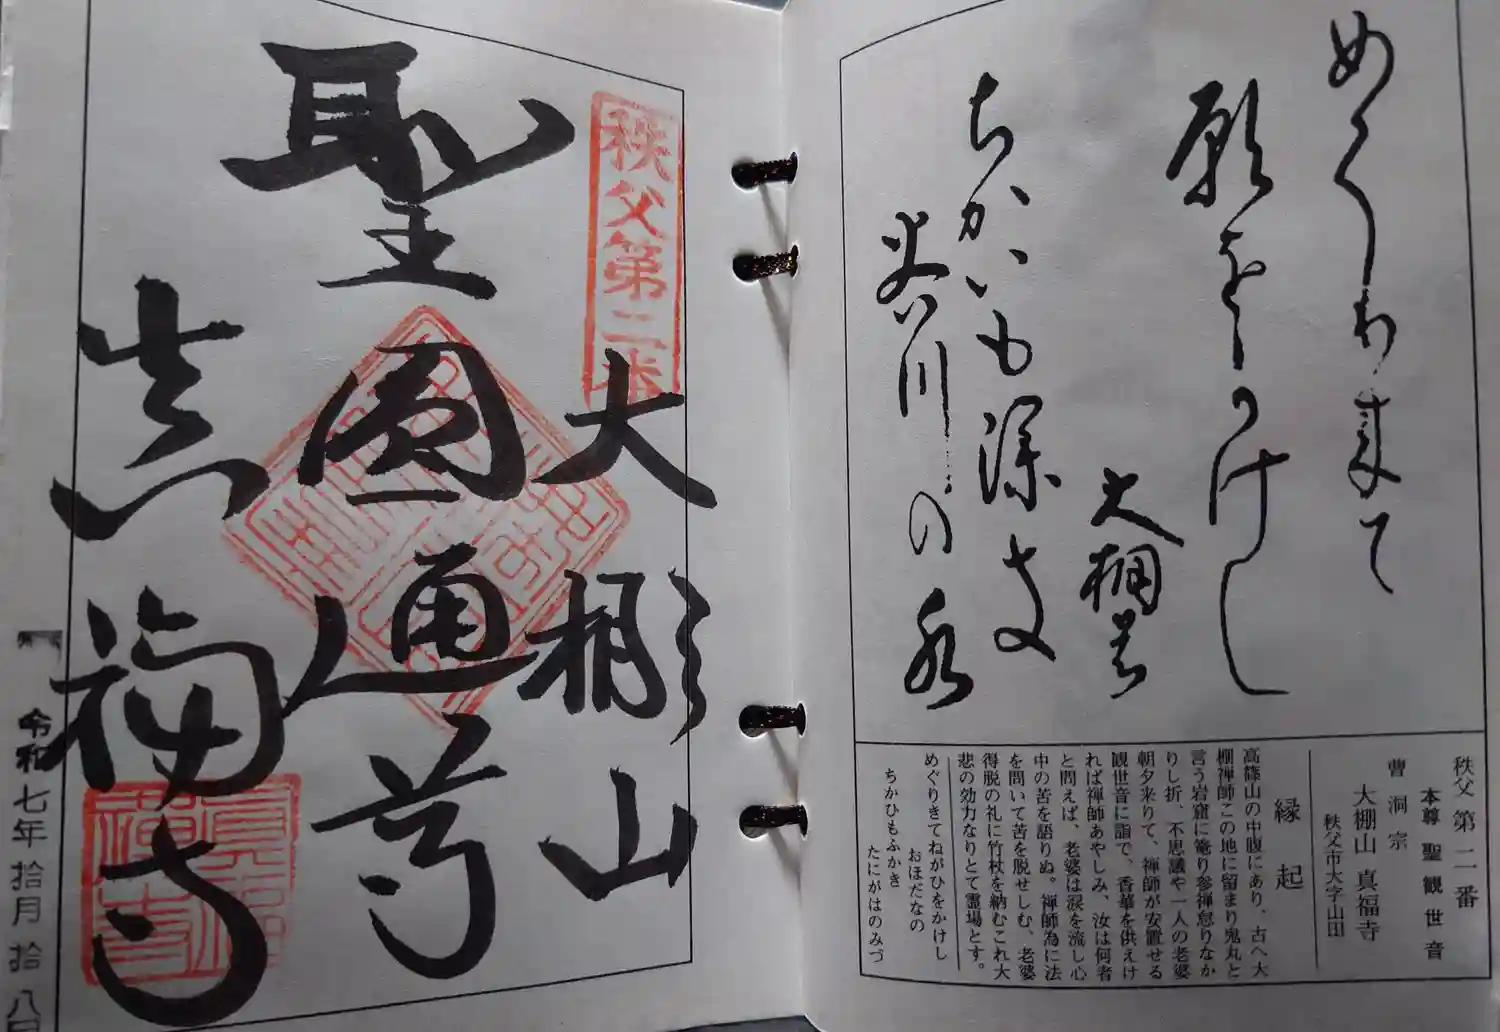 めくりわ来て
願をかけし
大棚の
ちかいも深き
谷川の水
秩父 第二番
本尊 聖観世音
曹洞宗
大棚山 真福寺
秩父市大字山田
縁起
高篠山の中腹にあり、古へ大
棚禅師この地に留まり鬼丸と
言う岩窟に篭り参禅怠りなか
りし折、不思議や一人の老婆
朝夕来りて、禅師が安置せる
観世音に詣で、香華を供えけ
れば禅師あやしみ、汝は何者
と問えば、老婆は涙を流し心
中の苦を語りぬ。禅師為に法
を問いて苦を脱せしむ、老婆
得脱の礼に竹杖を納むこれ大
悲の効力なりとて霊場とす。
めぐりきてねがひをかけし
おほだなの
ちかひもふかき
たにがはのみづ
秩父第二番
大棚山
聖圓通堂
真福寺
真福寺
令和七年拾月拾八日